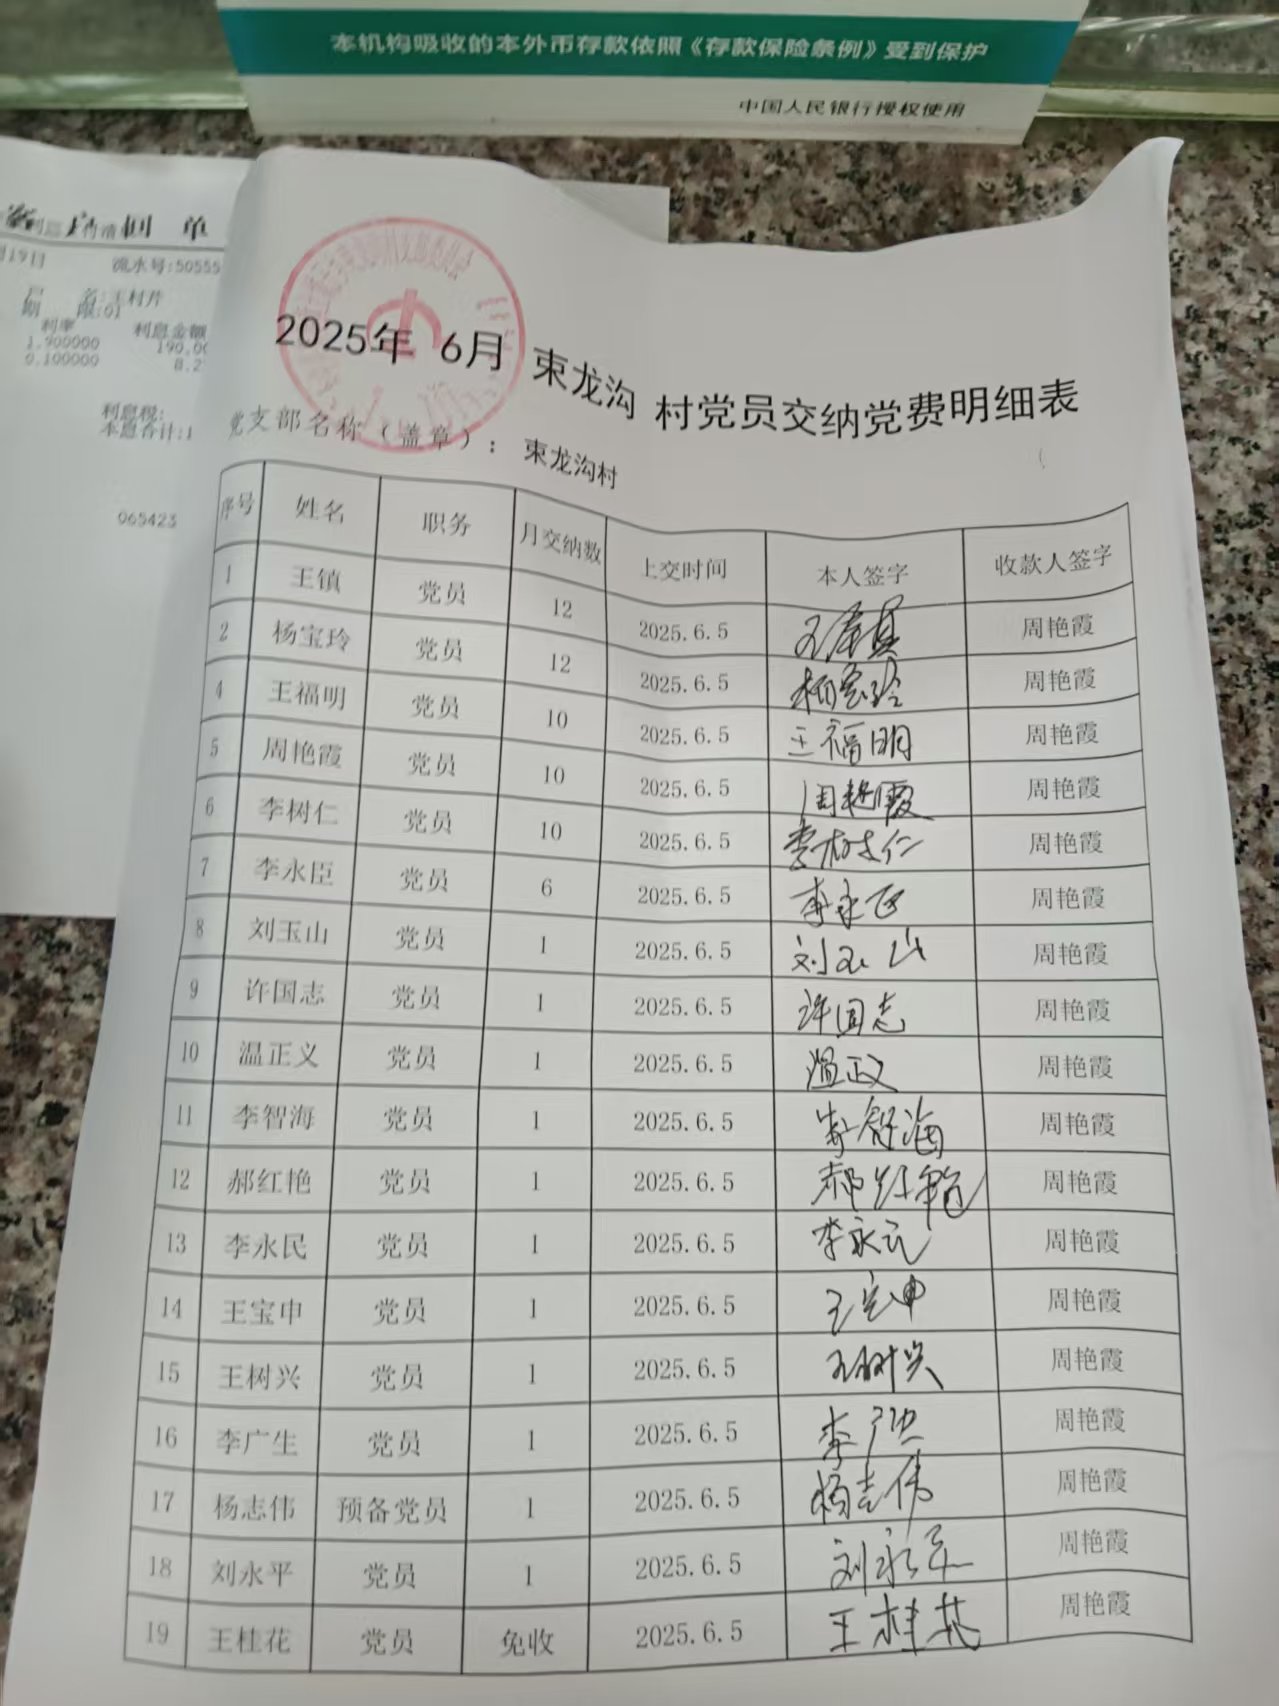 本机构吸收的本外币存款依照《存款保险条例》受到保护
中国人民银行授权使用
回 单
月19日 流水号:50555
户 名:王村芹
期 限:01
利率 利息金额
1.900000 190.00
0.100000 8.2
利息税:
本息合计:1
065423
2025年 6月 束龙沟 村党员交纳党费明细表
党支部名称（盖章）：束龙沟村
序号 姓名 职务 月交纳数 上交时间 本人签字 收款人签字
1 王镇 党员 12 2025.6.5 王镇 周艳霞
2 杨宝玲 党员 12 2025.6.5 杨宝玲 周艳霞
4 王福明 党员 10 2025.6.5 王福明 周艳霞
5 周艳霞 党员 10 2025.6.5 周艳霞 周艳霞
6 李树仁 党员 10 2025.6.5 李树仁 周艳霞
7 李永臣 党员 6 2025.6.5 李永臣 周艳霞
8 刘玉山 党员 1 2025.6.5 刘玉山 周艳霞
9 许国志 党员 1 2025.6.5 许国志 周艳霞
10 温正义 党员 1 2025.6.5 温正义 周艳霞
11 李智海 党员 1 2025.6.5 李智海 周艳霞
12 郝红艳 党员 1 2025.6.5 郝红艳 周艳霞
13 李永民 党员 1 2025.6.5 李永民 周艳霞
14 王宝申 党员 1 2025.6.5 王宝申 周艳霞
15 王树兴 党员 1 2025.6.5 王树兴 周艳霞
16 李广生 党员 1 2025.6.5 李广生 周艳霞
17 杨志伟 预备党员 1 2025.6.5 杨志伟 周艳霞
18 刘永平 党员 1 2025.6.5 刘永平 周艳霞
19 王桂花 党员 免收 2025.6.5 王桂花 周艳霞